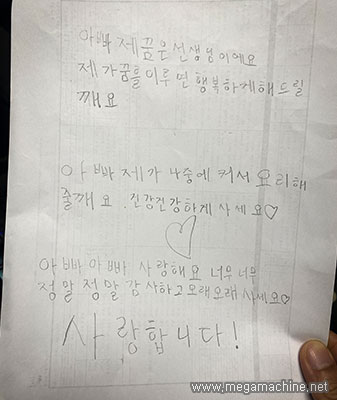 아빠 제 꿈은 선생님이에요
제가 꿈를 이루면 행복하게 해드릴
깨요
아빠 제가 나중에 커서 요리해
줄깨요. 건강건강하게 사세요♡
아빠 아빠 사랑해요 너무 너무
정말 정말 감사하고 오래오래 사세요♡
사랑합니다!
www.megamachine.net